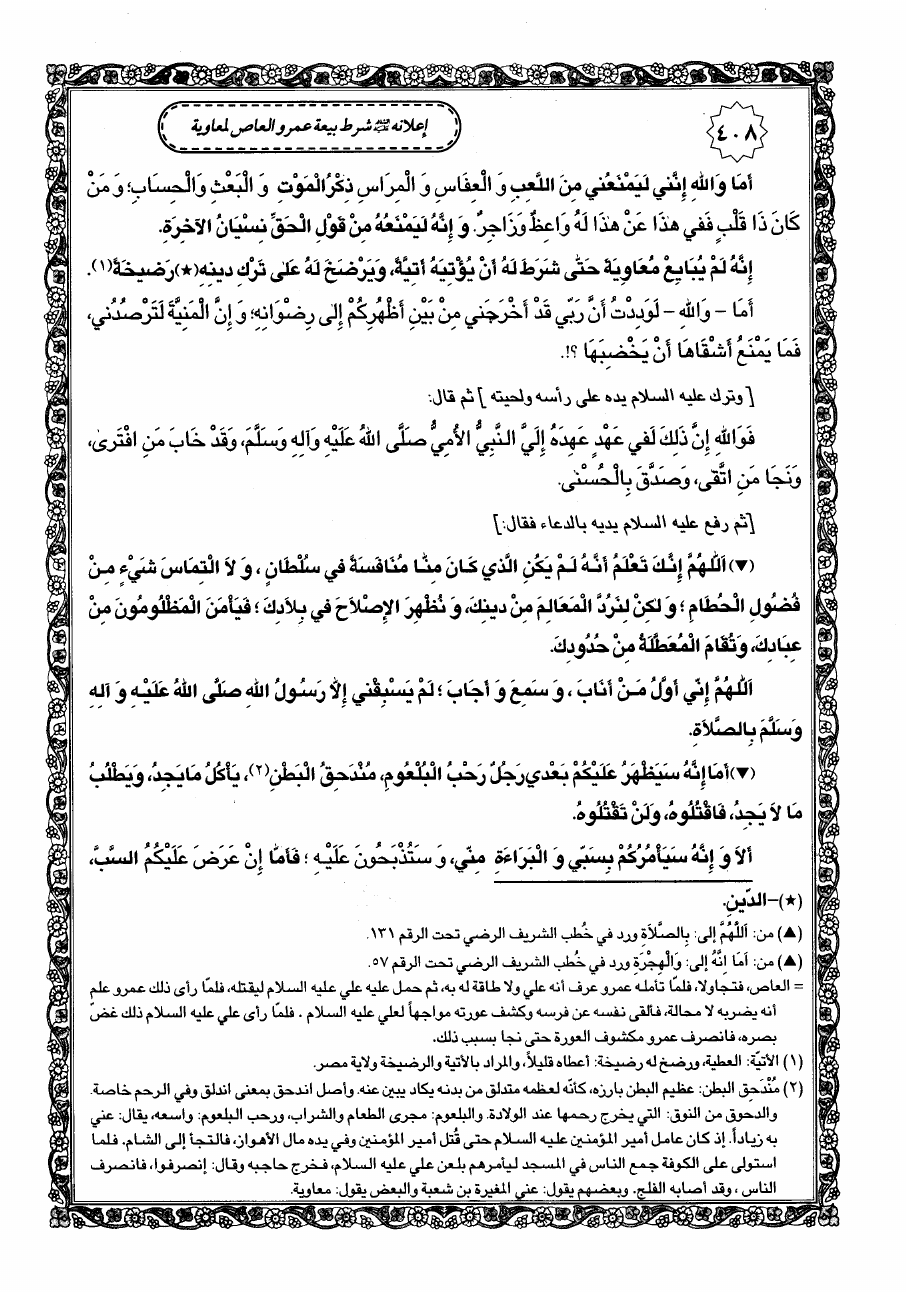 ٤٠٨
إعلانه عليه السلام شرط بيعة عمرو العاص لمعاوية
أَمَا وَاللهِ إِنَّني لَيَمْنَعُني مِنَ اللَّعِبِ وَ الْعِفَاسِ وَ الْمِرَاسِ ذِكْرُ الْمَوْتِ وَ الْبَعْثِ وَالْحِسَابِ؛ وَ مَنْ
كَانَ ذَا قَلْبٍ فَفي هذَا عَنْ هذَا لَهُ وَاعِظٌ وَزَاجِرٌ. وَ إِنَّهُ لَيَمْنَعُهُ مِنْ قَوْلِ الْحَقِّ نِسْيَانُ الآخِرَةِ.
إِنَّهُ لَمْ يُبَايِعْ مُعَاوِيَةَ حَتّى شَرَطَ لَهُ أَنْ يُؤْتِيَهُ أَتِيَّةً، وَيَرْضَخَ لَهُ عَلى تَرْكِ دينِهِ(★) رَضيخَةً(١).
أَمَا – وَاللهِ – لَوَدِدْتُ أَنَّ رَبّي قَدْ أَخْرَجَني مِنْ بَيْنِ أَظْهُرِكُمْ إِلى رِضْوَانِهِ؛ وَ إِنَّ الْمَنِيَّةَ لَتَرْصُدُني،
فَمَا يَمْنَعُ أَشْقَاهَا أَنْ يَخْضِبَهَا ؟!.
[ وترك عليه السلام يده على رأسه ولحيته ] ثم قال:
فَوَاللهِ إِنَّ ذَلِكَ لَفي عَهْدٍ عَهِدَهُ إِلَيَّ النَّبِيُّ الأُمِيُّ صَلَّى اللهُ عَلَيْهِ وَآلِهِ وَسَلَّمَ، وَقَدْ خَابَ مَنِ افْتَرىٰ،
وَنَجَا مَنِ اتَّقىٰ، وَصَدَّقَ بِالْحُسْنىٰ.
[ثم رفع عليه السلام يديه بالدعاء فقال:]
(▼) اَللّٰهُمَّ إِنَّكَ تَعْلَمُ أَنَّهُ لَمْ يَكُنِ الَّذي كَانَ مِنّا مُنَافَسَةً في سُلْطَانٍ ، وَ لاَ الْتِمَاسَ شَيْءٍ مِنْ
فُضُولِ الْحُطَامِ ؛ وَ لكِنْ لِنَرُدَّ الْمَعَالِمَ مِنْ دينِكَ، وَ نُظْهِرَ الإِصْلاَحَ في بِلاَدِكَ ؛ فَيَأْمَنَ الْمَظْلُومُونَ مِنْ
عِبَادِكَ، وَتُقَامَ الْمُعَطَّلَةُ مِنْ حُدُودِكَ.
اَللّٰهُمَّ إِنّي أَوَّلُ مَنْ أَنَابَ ، وَ سَمِعَ وَ أَجَابَ ؛ لَمْ يَسْبِقْني إِلاَّ رَسُولُ اللهِ صَلَّى اللهُ عَلَيْهِ وَ آلِهِ
وَسَلَّمَ بِالصَّلاَةِ.
(▼) أَمَا إِنَّهُ سَيَظْهَرُ عَلَيْكُمْ بَعْدي رَجُلٌ رَحْبُ الْبُلْعُومِ، مُنْدَحِقُ الْبَطْنِ(٢)، يَأْكُلُ مَا يَجِدُ، وَيَطْلُبُ
مَا لاَ يَجِدُ، فَاقْتُلُوهُ، وَلَنْ تَقْتُلُوهُ.
أَلاَ وَ إِنَّهُ سَيَأْمُرُكُمْ بِسَبّي وَ الْبَرَاءَةِ مِنّي، وَ سَتُذْبَحُونَ عَلَيْهِ ؛ فَأَمّا إِنْ عَرَضَ عَلَيْكُمُ السَّبَّ،
(★)–الدّينِ.
(▲) من: اَللّٰهُمَّ إلى: بِالصَّلاَةِ ورد في خُطب الشريف الرضي تحت الرقم ١٣١.
(▲) من: أَمَا إِنَّهُ إلى: وَالْهِجْرَةِ ورد في خُطب الشريف الرضي تحت الرقم ٥٧.
= العاص، فتجاولا، فلمّا تأمله عمرو عرف أنه علي ولا طاقة له به، ثم حمل عليه علي عليه السلام ليقتله، فلمّا رأى ذلك عمرو علم
أنه يضربه لا محالة، فألقى نفسه عن فرسه وكشف عورته مواجهاً لعلي عليه السلام . فلمّا رأى علي عليه السلام ذلك غضّ
بصره، فانصرف عمرو مكشوف العورة حتى نجا بسبب ذلك.
(١) الأتيّة: العطية، ورضخ له رضيخة: أعطاه قليلاً، والمراد بالأتية والرضيخة ولاية مصر.
(٢) مُنْدَحِق البطن: عظيم البطن بارزه، كأنّه لعظمه متدلق من بدنه يكاد يبين عنه. وأصل اندحق بمعنى اندلق وفي الرحم خاصة.
والدحوق من النوق: التي يخرج رحمها عند الولادة. والبلعوم: مجرى الطعام والشراب، ورحب البلعوم: واسعه، يقال: عني
به زياداً. إذ كان عامل أمير المؤمنين عليه السلام حتى قُتل أمير المؤمنين وفي يده مال الأهواز، فالتجأ إلى الشام. فلما
استولى على الكوفة جمع الناس في المسجد ليأمرهم بلعن علي عليه السلام، فخرج حاجبه وقال: إنصرفوا، فانصرف
الناس ، وقد أصابه الفلج. وبعضهم يقول: عني المغيرة بن شعبة والبعض يقول: معاوية.